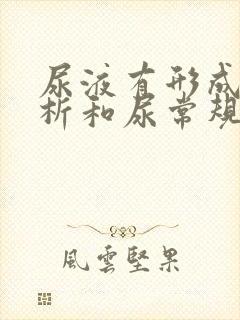 尿液有形成
析和尿常规
風雲堅果